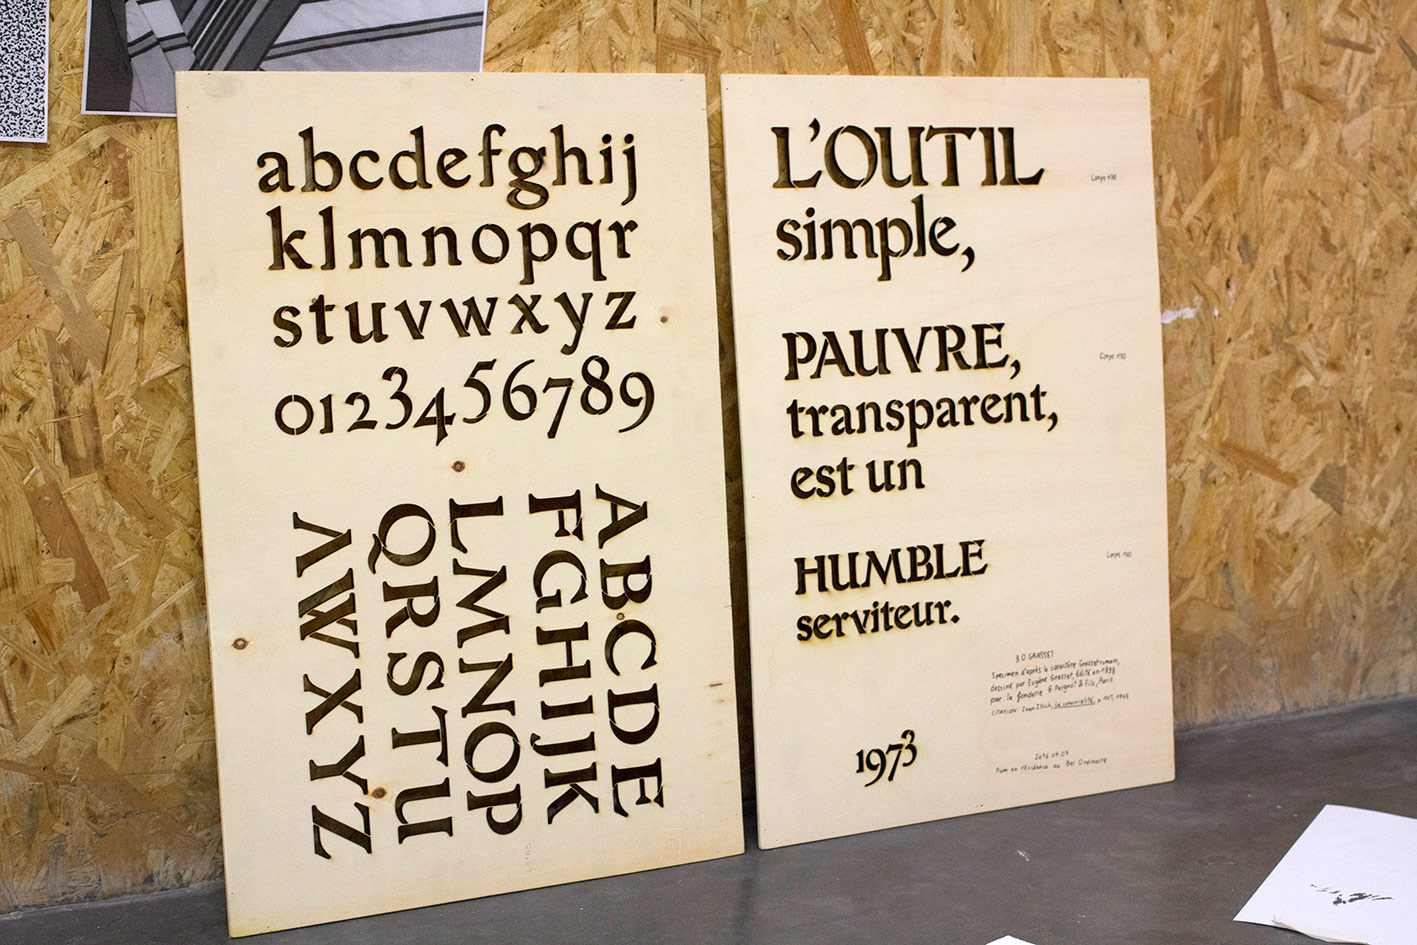 abcdefghij
klmnopqr
stuvwxyz
0123456789
ABCDE
FGHIJK
LMNOP
QRSTU
VWXYZ
L'OUTIL
simple,
PAUVRE,
transparent,
est un
HUMBLE
serviteur.
1973
B.O GRASSET
Specimen d'après le caractère Grasset romain,
dessiné par Eugène Grasset, édité en 1898
par la fonderie G Peignot & Fils, Paris
citation: Ivan Illich, La convivialité, p
Bel Ordinaire